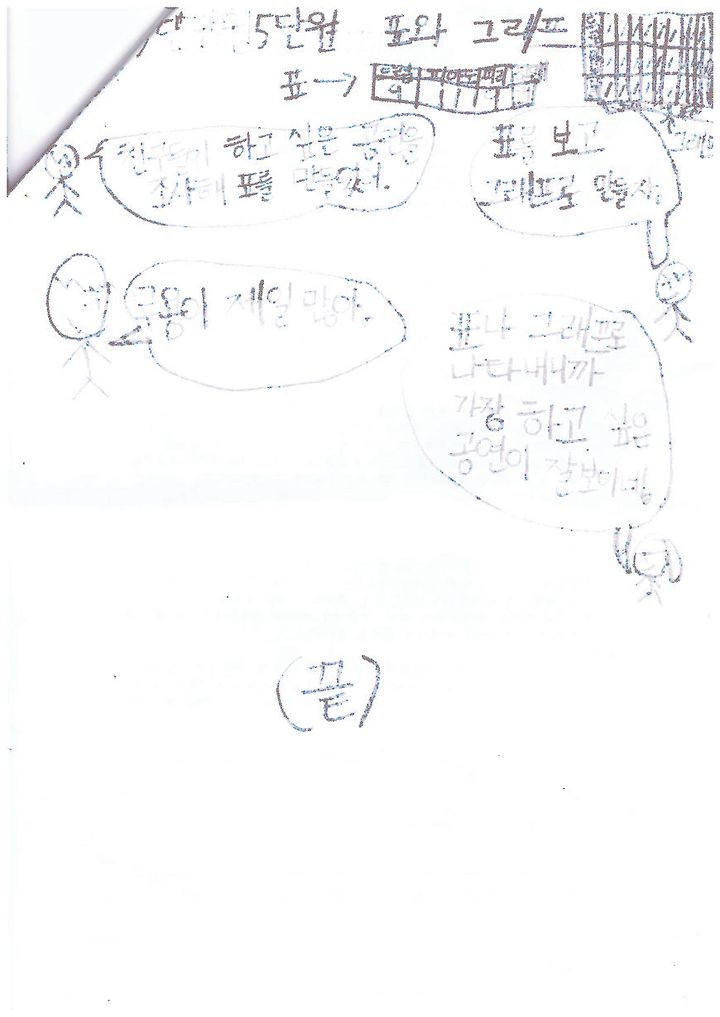 5단원 표와 그래프
표→
친구들이 하고 싶은 공연을
조사해 표를 만들었어.
표를 보고
그래프로 만들자.
무용이 제일 많아.
표나 그래프로
나타내니까
가장 하고 싶은
공연이 잘보이네.
(끝)